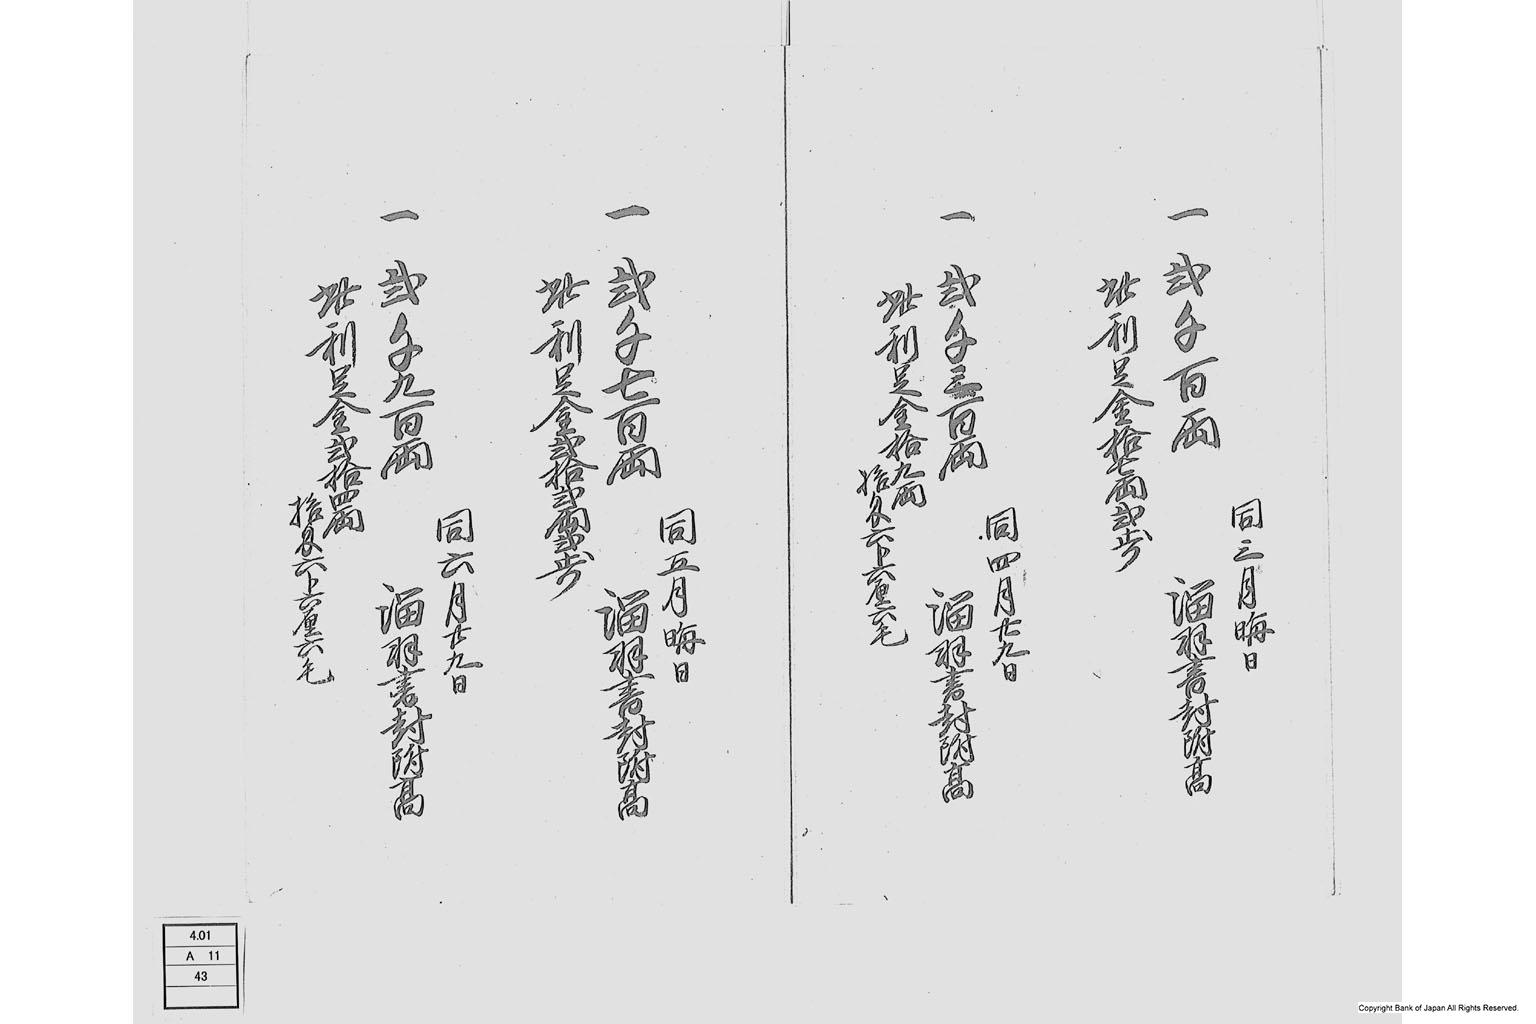 同三月晦日
一 弐千百両 溜羽書封附高
此利足金拾七両弐歩
同四月廿九日
一 弐千三百両 溜羽書封附高
此利足金拾九両
拾匁六分六厘六毛
同五月晦日
一 弐千七百両 溜羽書封附高
此利足金弐拾弐両弐歩
同六月廿九日
一 弐千九百両 溜羽書封附高
此利足金弐拾四両
拾匁六分六厘六毛
4.01
A 11
43
Copyright Bank of Japan All Rights Reserved.